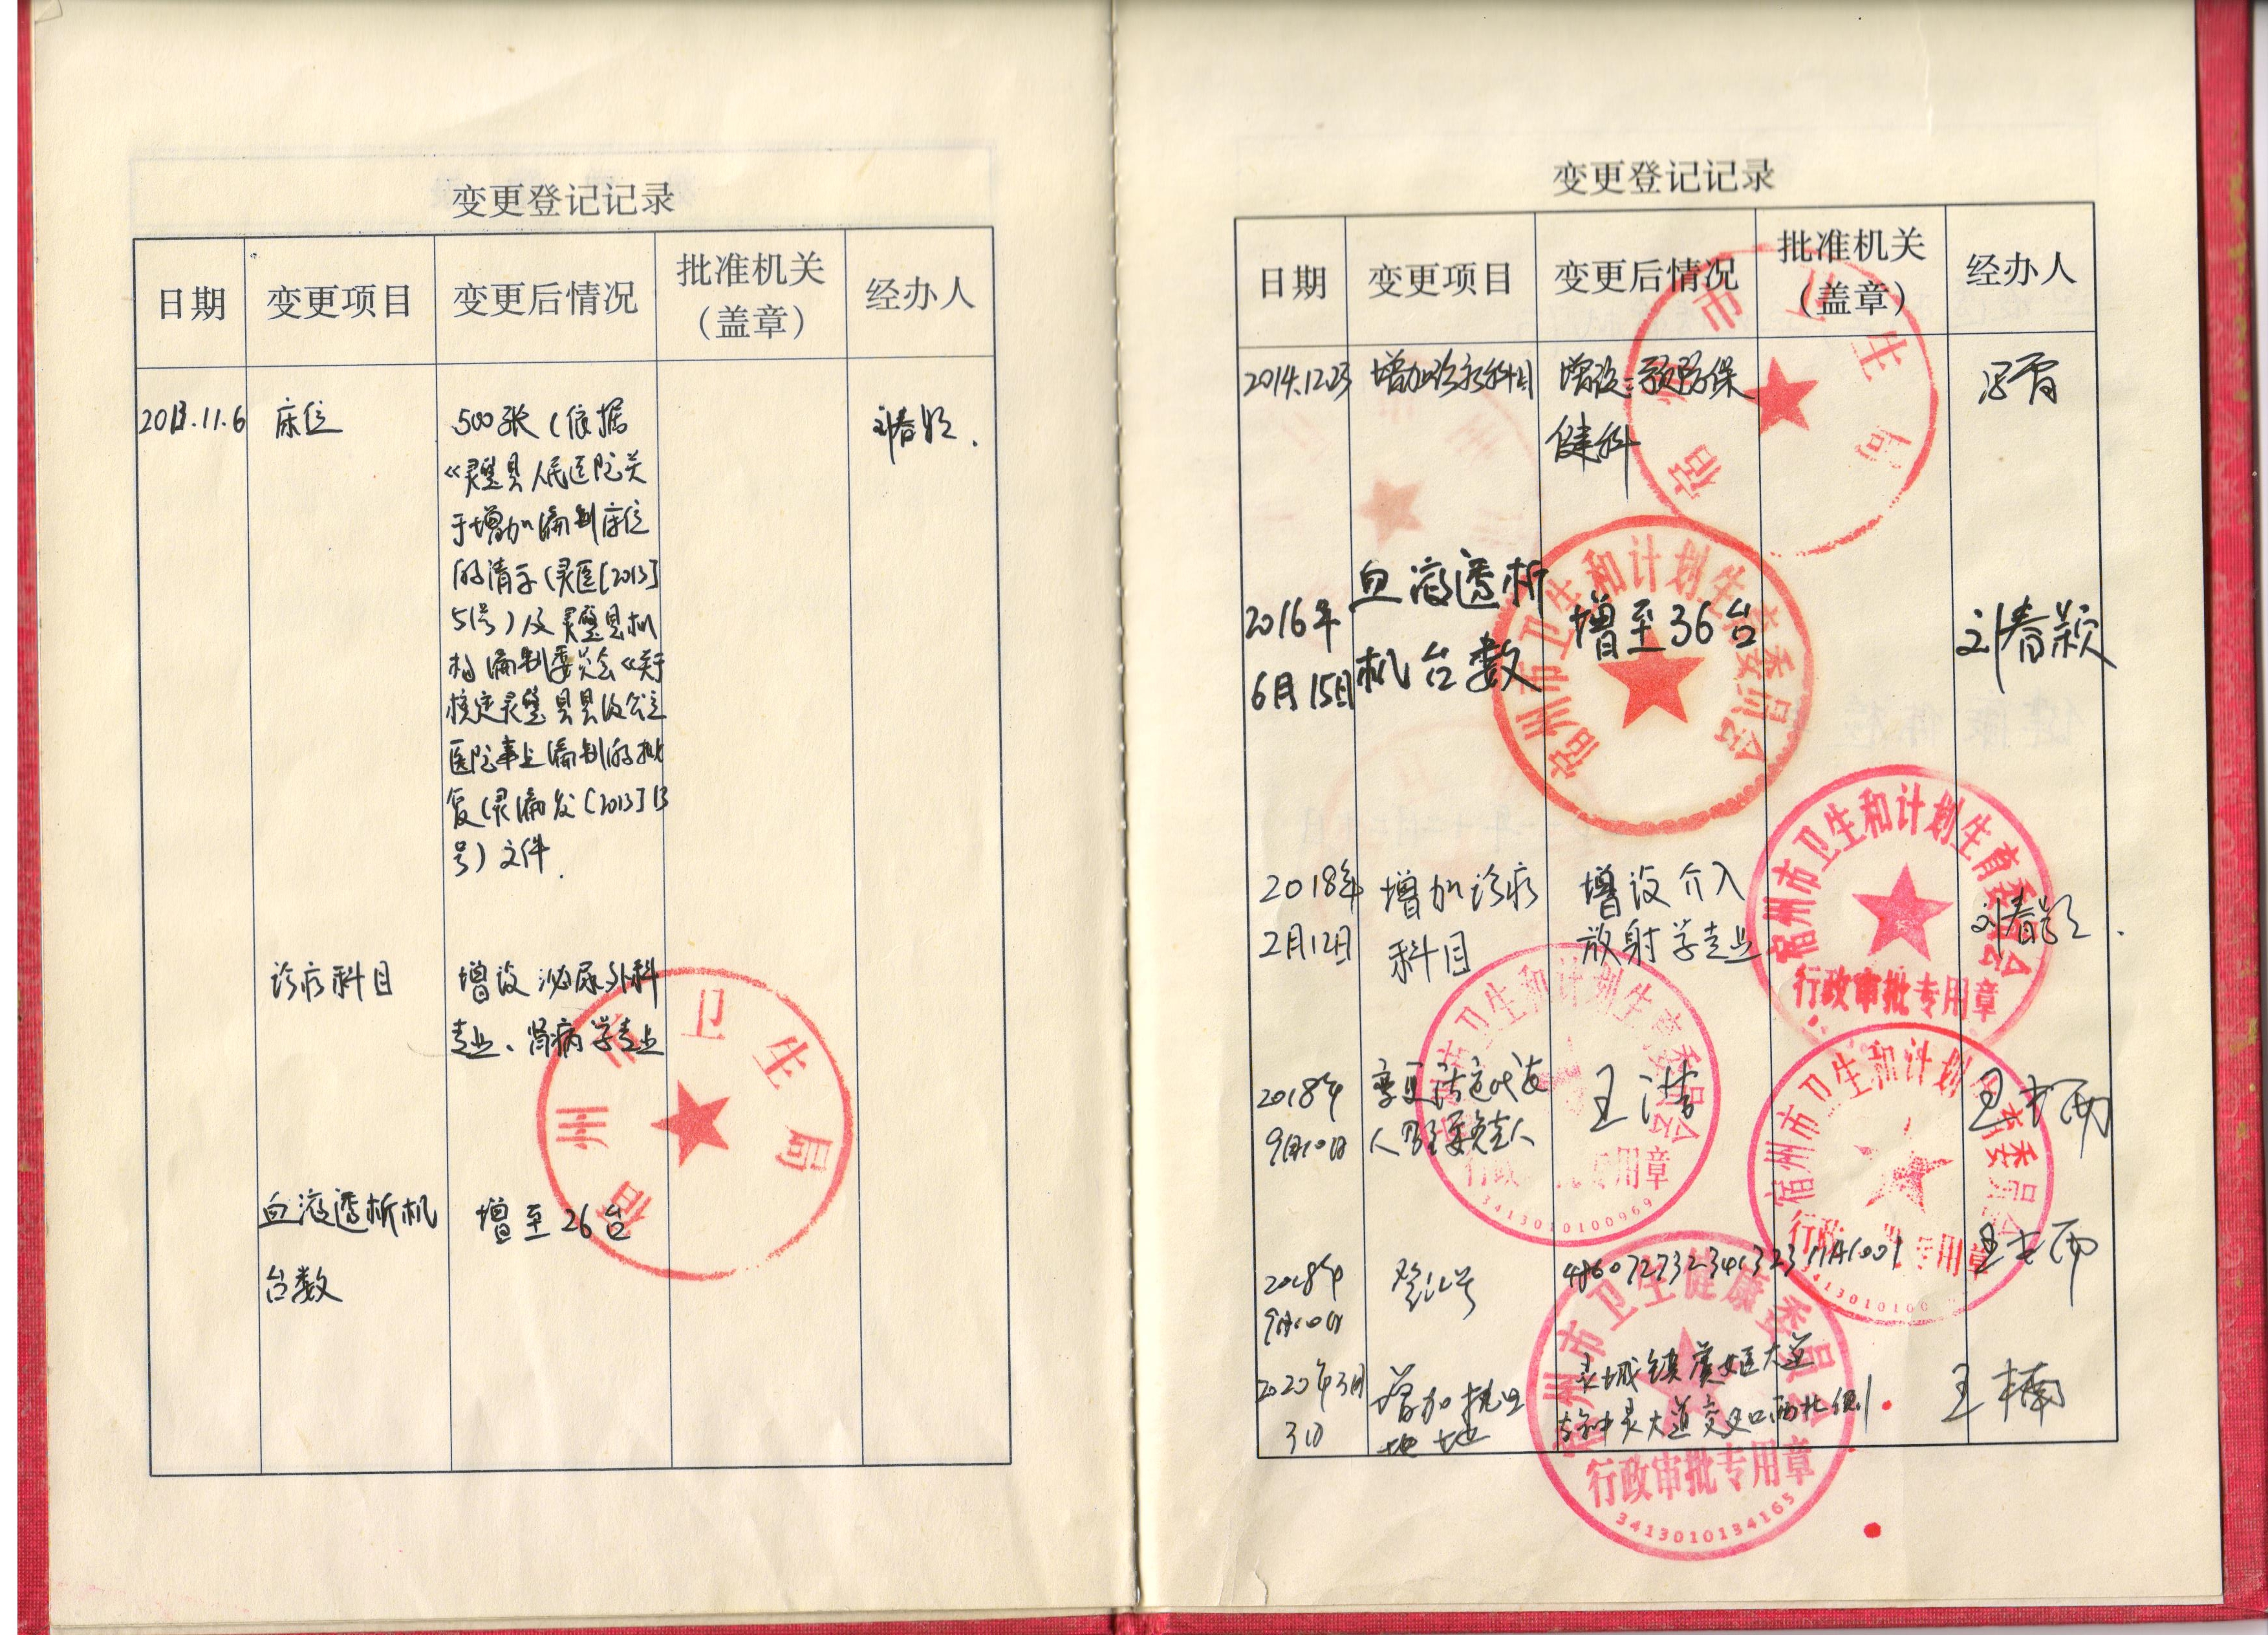 变更登记记录
日期 变更项目 变更后情况 批准机关（盖章） 经办人
2013.11.6 床位 500张（依据 刘春颖.
《灵璧县人民医院关
于增加编制床位
的请示（灵医[2013]
51号）及灵璧县机
构编制委员会《关于
核定灵璧县县级公立
医院事业编制的批
复（灵编发〔2013〕13
号）文件.
诊疗科目 增设泌尿外科
专业、肾病学专业
血液透析机 增至26台
台数
宿州市卫生局
变更登记记录
日期 变更项目 变更后情况 批准机关（盖章） 经办人
2014.12.23 增加诊疗科目 增设：预防保
健科
宿州市卫生局
2016年 血液透析 增至36台 刘春颖
6月15日 机台数
宿州市卫生和计划生育委员会
2018年 增加诊疗 增设介入 刘春颖.
2月12日 科目 放射学专业
宿州市卫生和计划生育委员会
行政审批专用章
2018年 变更法定代表 王
9月10日 人及主要负责人
宿州市卫生和计划生育委员会
行政审批专用章
3413010100969
2018年 登记号 48607273234132311A1001
9月10日
宿州市卫生和计划生育委员会
行政审批专用章
2020年3月 增加执业 灵城镇虞姬大道 王楠
3日 地址 与钟灵大道交叉口西北侧
宿州市卫生健康委员会
行政审批专用章
3413010134165